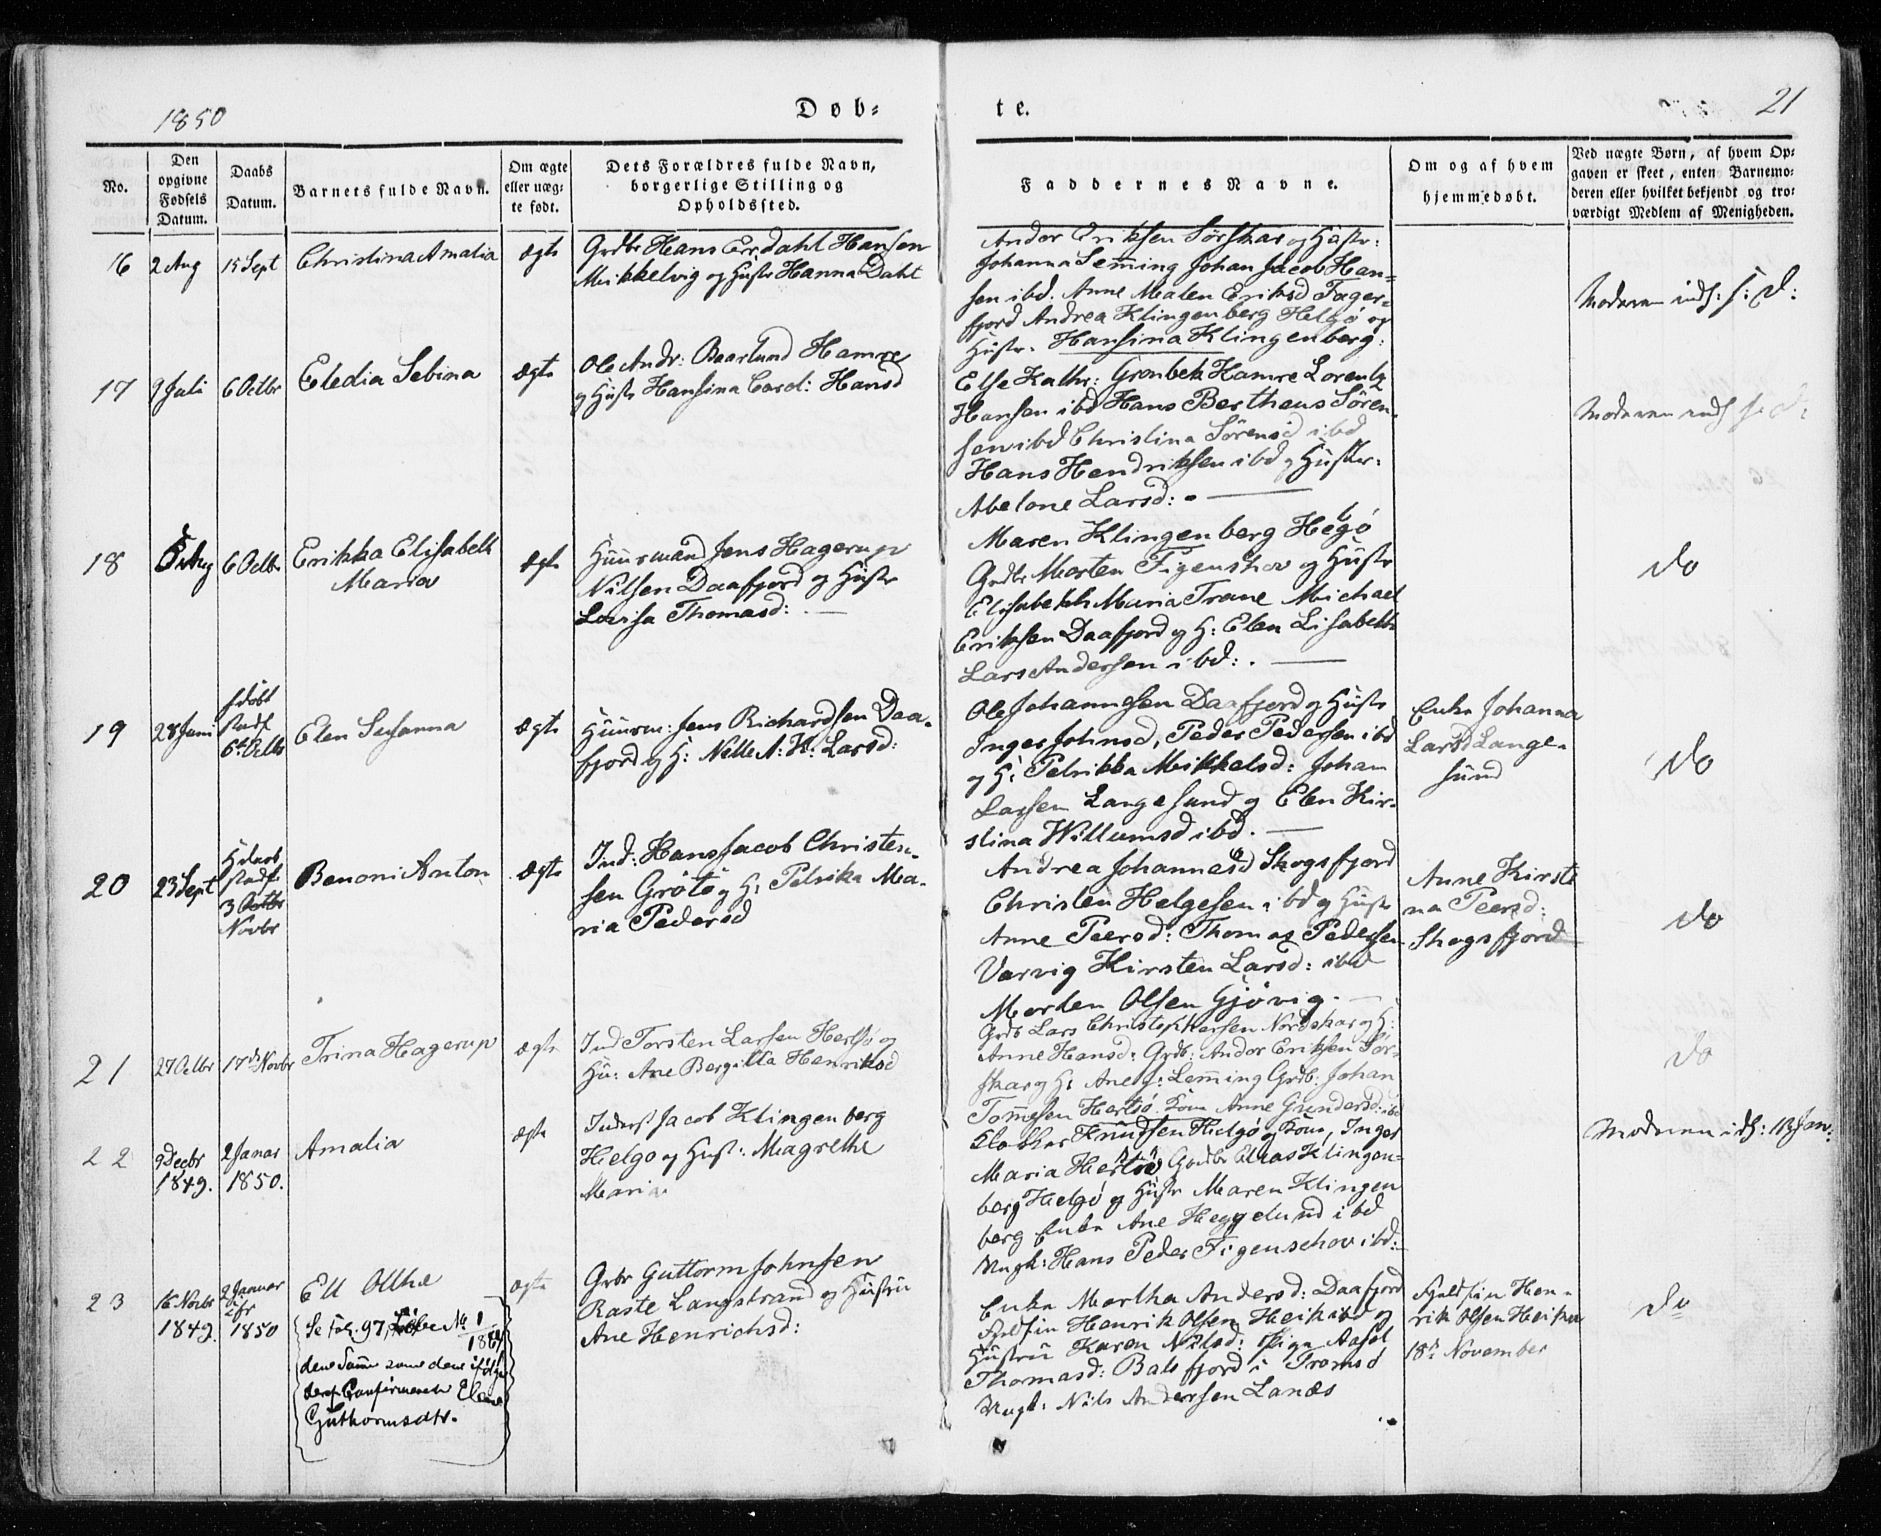 1850
Døb-
te.
21
No.
Den
opgivne
Fødsels
Datum.
Daabs
Datum.
Barnets fulde Navn.
Om ægte
eller uæg-
te født.
Dets Forældres fulde Navn,
borgerlige Stilling og
Opholdssted.
Faddernes Navne.
Om og af hvem
hjemmedøbt.
Ved uægte Børn, af hvem Op-
gaven er skeet, enten Barnemo-
deren eller hvilket bekjendt og tro-
værdigt Medlem af Menigheden.
16
2 Aug
15 Sept
Christina Amalia
ægte
Grdbr Hans Erdahl Hansen
Mikkelvig og Hustr Hanna Dahl
Andor Eriksen Sørskar og Hustr:
Johanna Leming Johan Jacob Han-
sen ibd. Anne Malen Eriksd Fager-
fjord Andrea Klingenberg Helgø og
Hustr. Hansina Klingenberg:
Moderen inds: s: D:
17
9 Juli
6 Octbr
Eledia Sebina
ægte
Ole Andr: Baarlund Hamre
og Hustr Hansina Carol: Hansd
Else Kathr: Grønbek Hamre Lorentz
Hansen ibd Hans Bertheus Søren-
sen ibd Christina Sørensd ibd
Hans Hendriksen ibd og Hustr:
Abelone Larsd:
Moderen inds s: d:
18
6 Octbr
Erikka Elisabeth
Maria
ægte
Huusmand Jens Hagerup
Nilsen Daafjord og Hustr
Lovisa Thomasd:
Maren Klingenberg Helgø
Grdbr Morten Figenschov og Hustr
Elisabekh Maria Trane Michael
Eriksen Daafjord og H: Elen Lisabeth
Lars Andersen ibd:
do
19
28 Juni
hdøbt
stadf
6te Octbr
Elen Susanna
ægte
Huusm: Jens Richardsen Daa-
fjord og H: Nelle A: K: Larsd:
Ole Johannsen Daafjord og Hustr
Inger Johnsd, Peder Pedersen ibd
og H: Pelrikka Mikkelsd: Johan
Larsen Langesund og Elen Kir-
stina Willumsd ibd.
Enke Johanna
Larsd Lange-
sund
do
20
23 Sept
Hdaab
stadf
3 Octbr
Novbr
Benoni Anton
ægte
Ind: Hans Jacob Christen-
sen Grøtø og H: Pelrika Ma-
ria Pedersd
Andrea Johannesd Skogsfjord
Christen Helgesen ibd og Hustr
Anne Peersd: Thomas Pedersen
Varvig Kirsten Larsd: ibd
Morten Olsen Gjøvig.
Anne Kirsti
na Peersd:
Skogsfjord
do
21
27 Octbr
17de Novbr
Trina Hagerup
ægte
Ind Torsten Larsen Hersø og
Hu: Ane Bergitta Henriksd
Grdb Lars Christophersen Nordskar og H:
Anne Hansd: Grdb: Andor Eriksen Sør-
skar og H: Ane J: Leming Grdb: Johan
Tommesen Hersø Kone Anne Gundersd: ibd
do
22
9 Decbr
1849.
2 Januar
1850.
Amalia
ægte
Inderst Jacob Klingenberg
Helgø og Hust: Magrethe
Maria
Knudsen Helgø og Kone, Inger
Maria Hersø Grdbr Klingen-
berg Helgø og Hustr Maren Klingen
berg Enke Ane Heggelund ibd
Ungk: Hans Peder Figenschov ibd:
Moderen ids: 13 Jan:
23
16 Novbr
1849.
2 Januar
1850
Ell Olthe
Se fol. 97, Døbe No 1
dene Samme som den
deraf Confirmerede Elene
Guthormsdtr.
ægte
Grbr Guttorm Johnsen
Raste Langstrand og Hustru
Ane Henrichsd:
Enke Martha Andersd: Daafjord
Fjeldfin Henrik Olsen Heika ibd og
Hustru Karen Nilsd: Pige Aasel
Thomasd: Balsfjord i Tromsø
Ungk: Nils Anderssen Lanæs
Fjeldfin Hen-
rik Olsen Heika
18de November
do